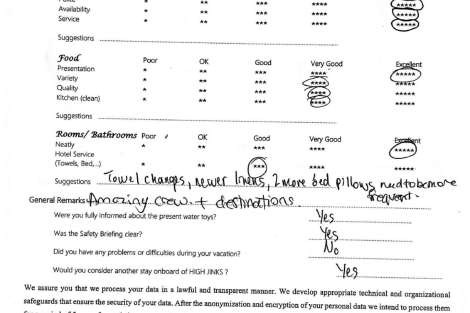 Availability * ** *** **** *****
Service * ** *** **** *****
Suggestions
Food Poor OK Good Very Good Excellent
Presentation * ** *** **** *****
Variety * ** *** **** *****
Quality * ** *** **** *****
Kitchen (clean) * ** *** **** *****
Suggestions
Rooms/ Bathrooms Poor OK Good Very Good Excellent
Neatly * ** *** **** *****
Hotel Service
(Towels, Bed,..) * ** *** **** *****
Suggestions Towel changes, newer linens, 2 more bed pillows need to be more
frequent
General Remarks Amazing crew + destinations.
Were you fully informed about the present water toys? Yes
Was the Safety Briefing clear? Yes
Did you have any problems or difficulties during your vacation? No
Would you consider another stay onboard of HIGH JINKS ? Yes
We assure you that we process your data in a lawful and transparent manner. We develop appropriate technical and organizational
safeguards that ensure the security of your data. After the anonymization and encryption of your personal data we intend to process them